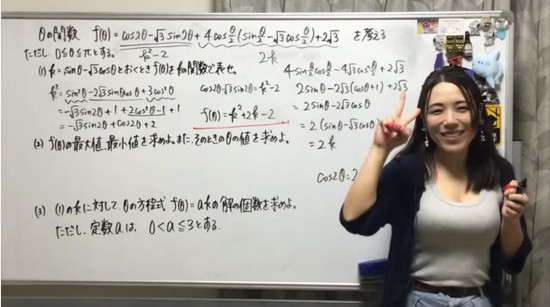 θの関数 f(θ)=cos2θ-√3 sin2θ+4cosθ/2(sinθ/2-√3cosθ/2)+2√3 を考える
ただし、0≦θ≦πとする。
k²-2
2k
(1) k=sinθ-√3cosθとおくとき f(θ)をkの関数で表せ。
k²=sin²θ-2√3sinθcosθ+3cos²θ
=-√3sin2θ+1+2cos²θ-1+1
=-√3sin2θ+cos2θ+2
cos2θ-√3sin2θ=k²-2
f(θ)=k²+2k-2
4sinθ/2cosθ/2-4√3cos²θ/2+2√3
2sinθ-2√3(cosθ+1)+2√3
=2sinθ-2√3cosθ
=2(sinθ-√3cosθ
=2k
cos2θ=2
(2) f(θ)の最大値、最小値を求めよ。また、そのときのθの値を求めよ。
(3) (1)のkに対して、θの方程式 f(θ)=akの解の個数を求めよ。
ただし、定数aは、0<a≦3とする。